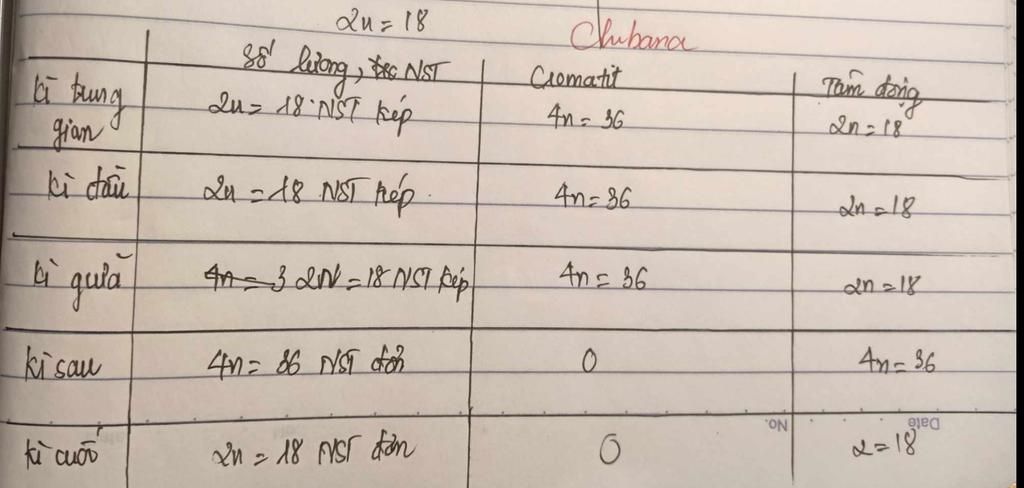 2n = 18
Chubana
Số lượng, NST
Cromatit
Tâm động
kì trung gian
2n = 18 NST kép
4n = 36
2n = 18
kì đầu
2n = 18 NST kép.
4n = 36
2n = 18
kì giữa
4n = 3 2N = 18 NST kép
4n = 36
2n = 18
kì sau
4n = 36 NST đơn
0
4n = 36
No.
Date
kì cuối
2n = 18 NST đơn
0
2 = 18